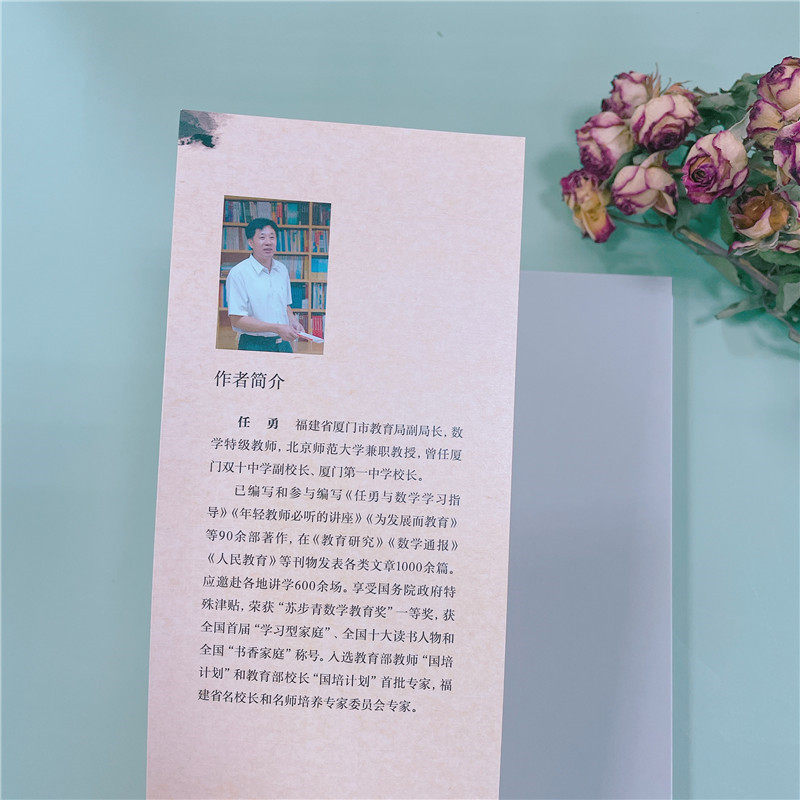 作者简介
任 勇 福建省厦门市教育局副局长，数
学特级教师，北京师范大学兼职教授，曾任厦
门双十中学副校长、厦门第一中学校长。
已编写和参与编写《任勇与数学学习指
导》《年轻教师必听的讲座》《为发展而教育》
等90余部著作，在《教育研究》《数学通报》
《人民教育》等刊物发表各类文章1000余篇。
应邀赴各地讲学600余场。享受国务院政府特
殊津贴，荣获“苏步青数学教育奖”一等奖，获
全国首届“学习型家庭”、全国十大读书人物和
全国“书香家庭”称号。入选教育部教师“国培
计划”和教育部校长“国培计划”首批专家，福
建省名校长和名师培养专家委员会专家。